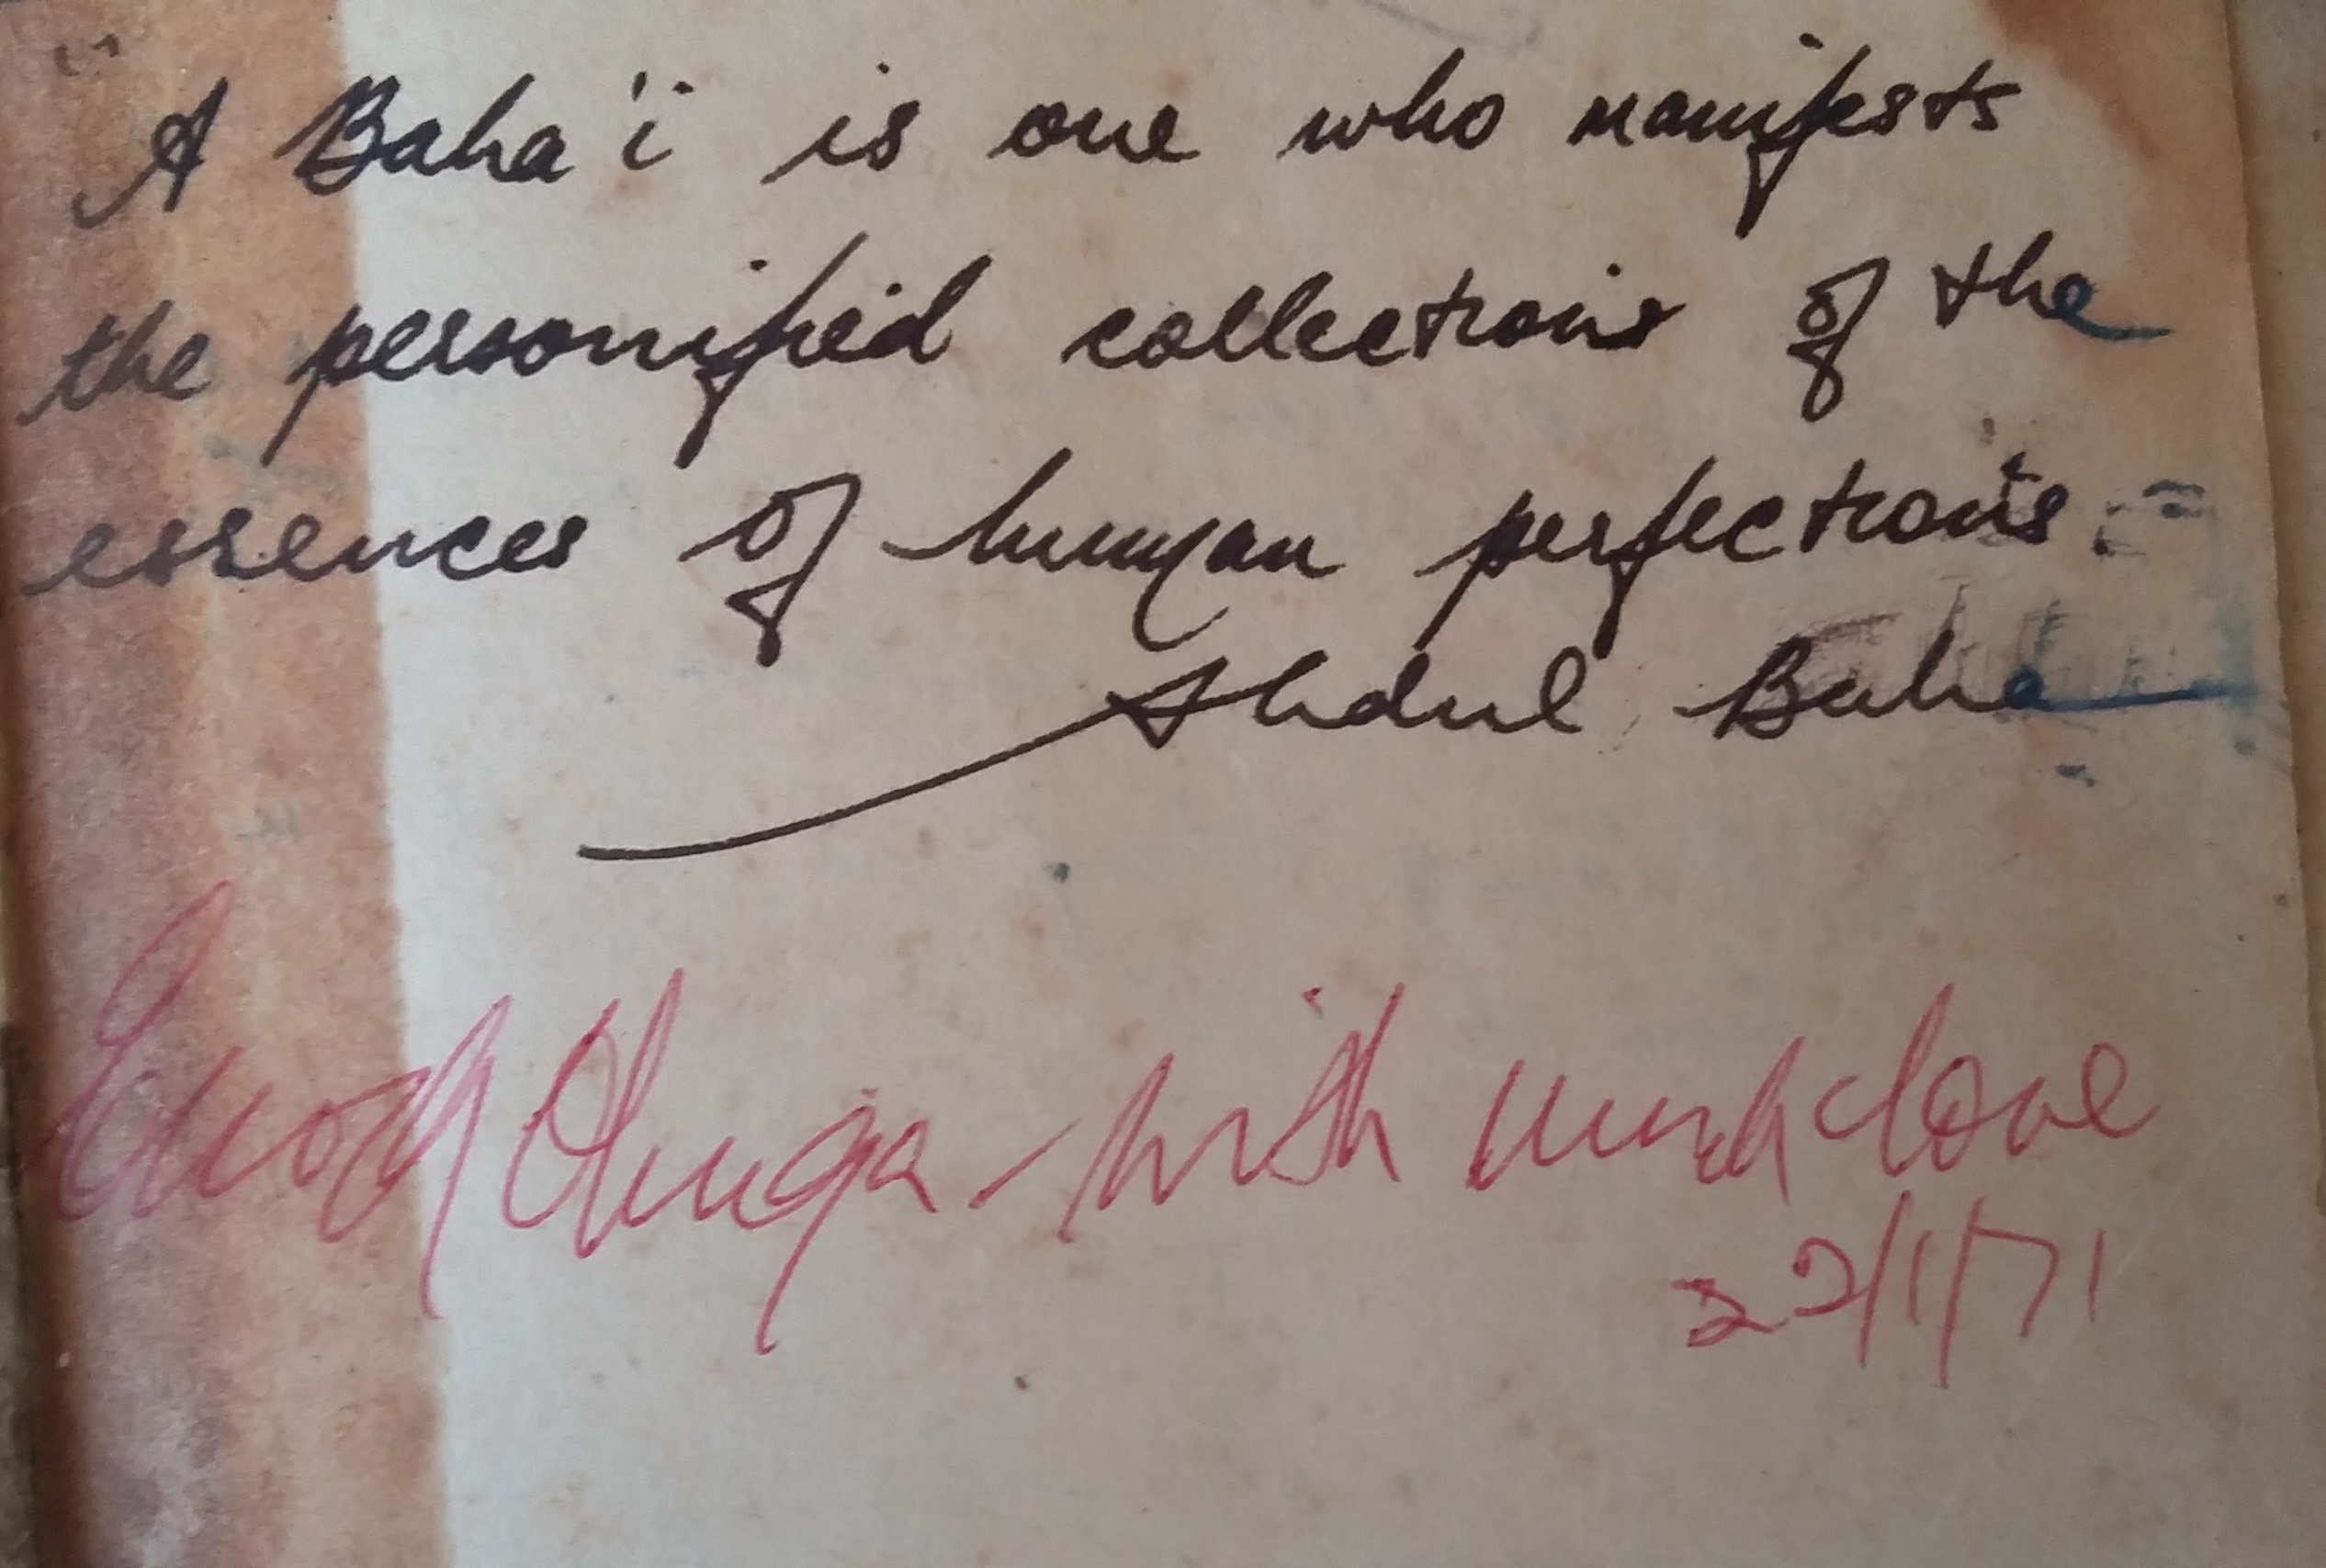 "A Baha'i is one who manifests
the personified collections of the
essences of human perfections."
Abdul Baha
Enoch Olinga - with much love
22/1/71